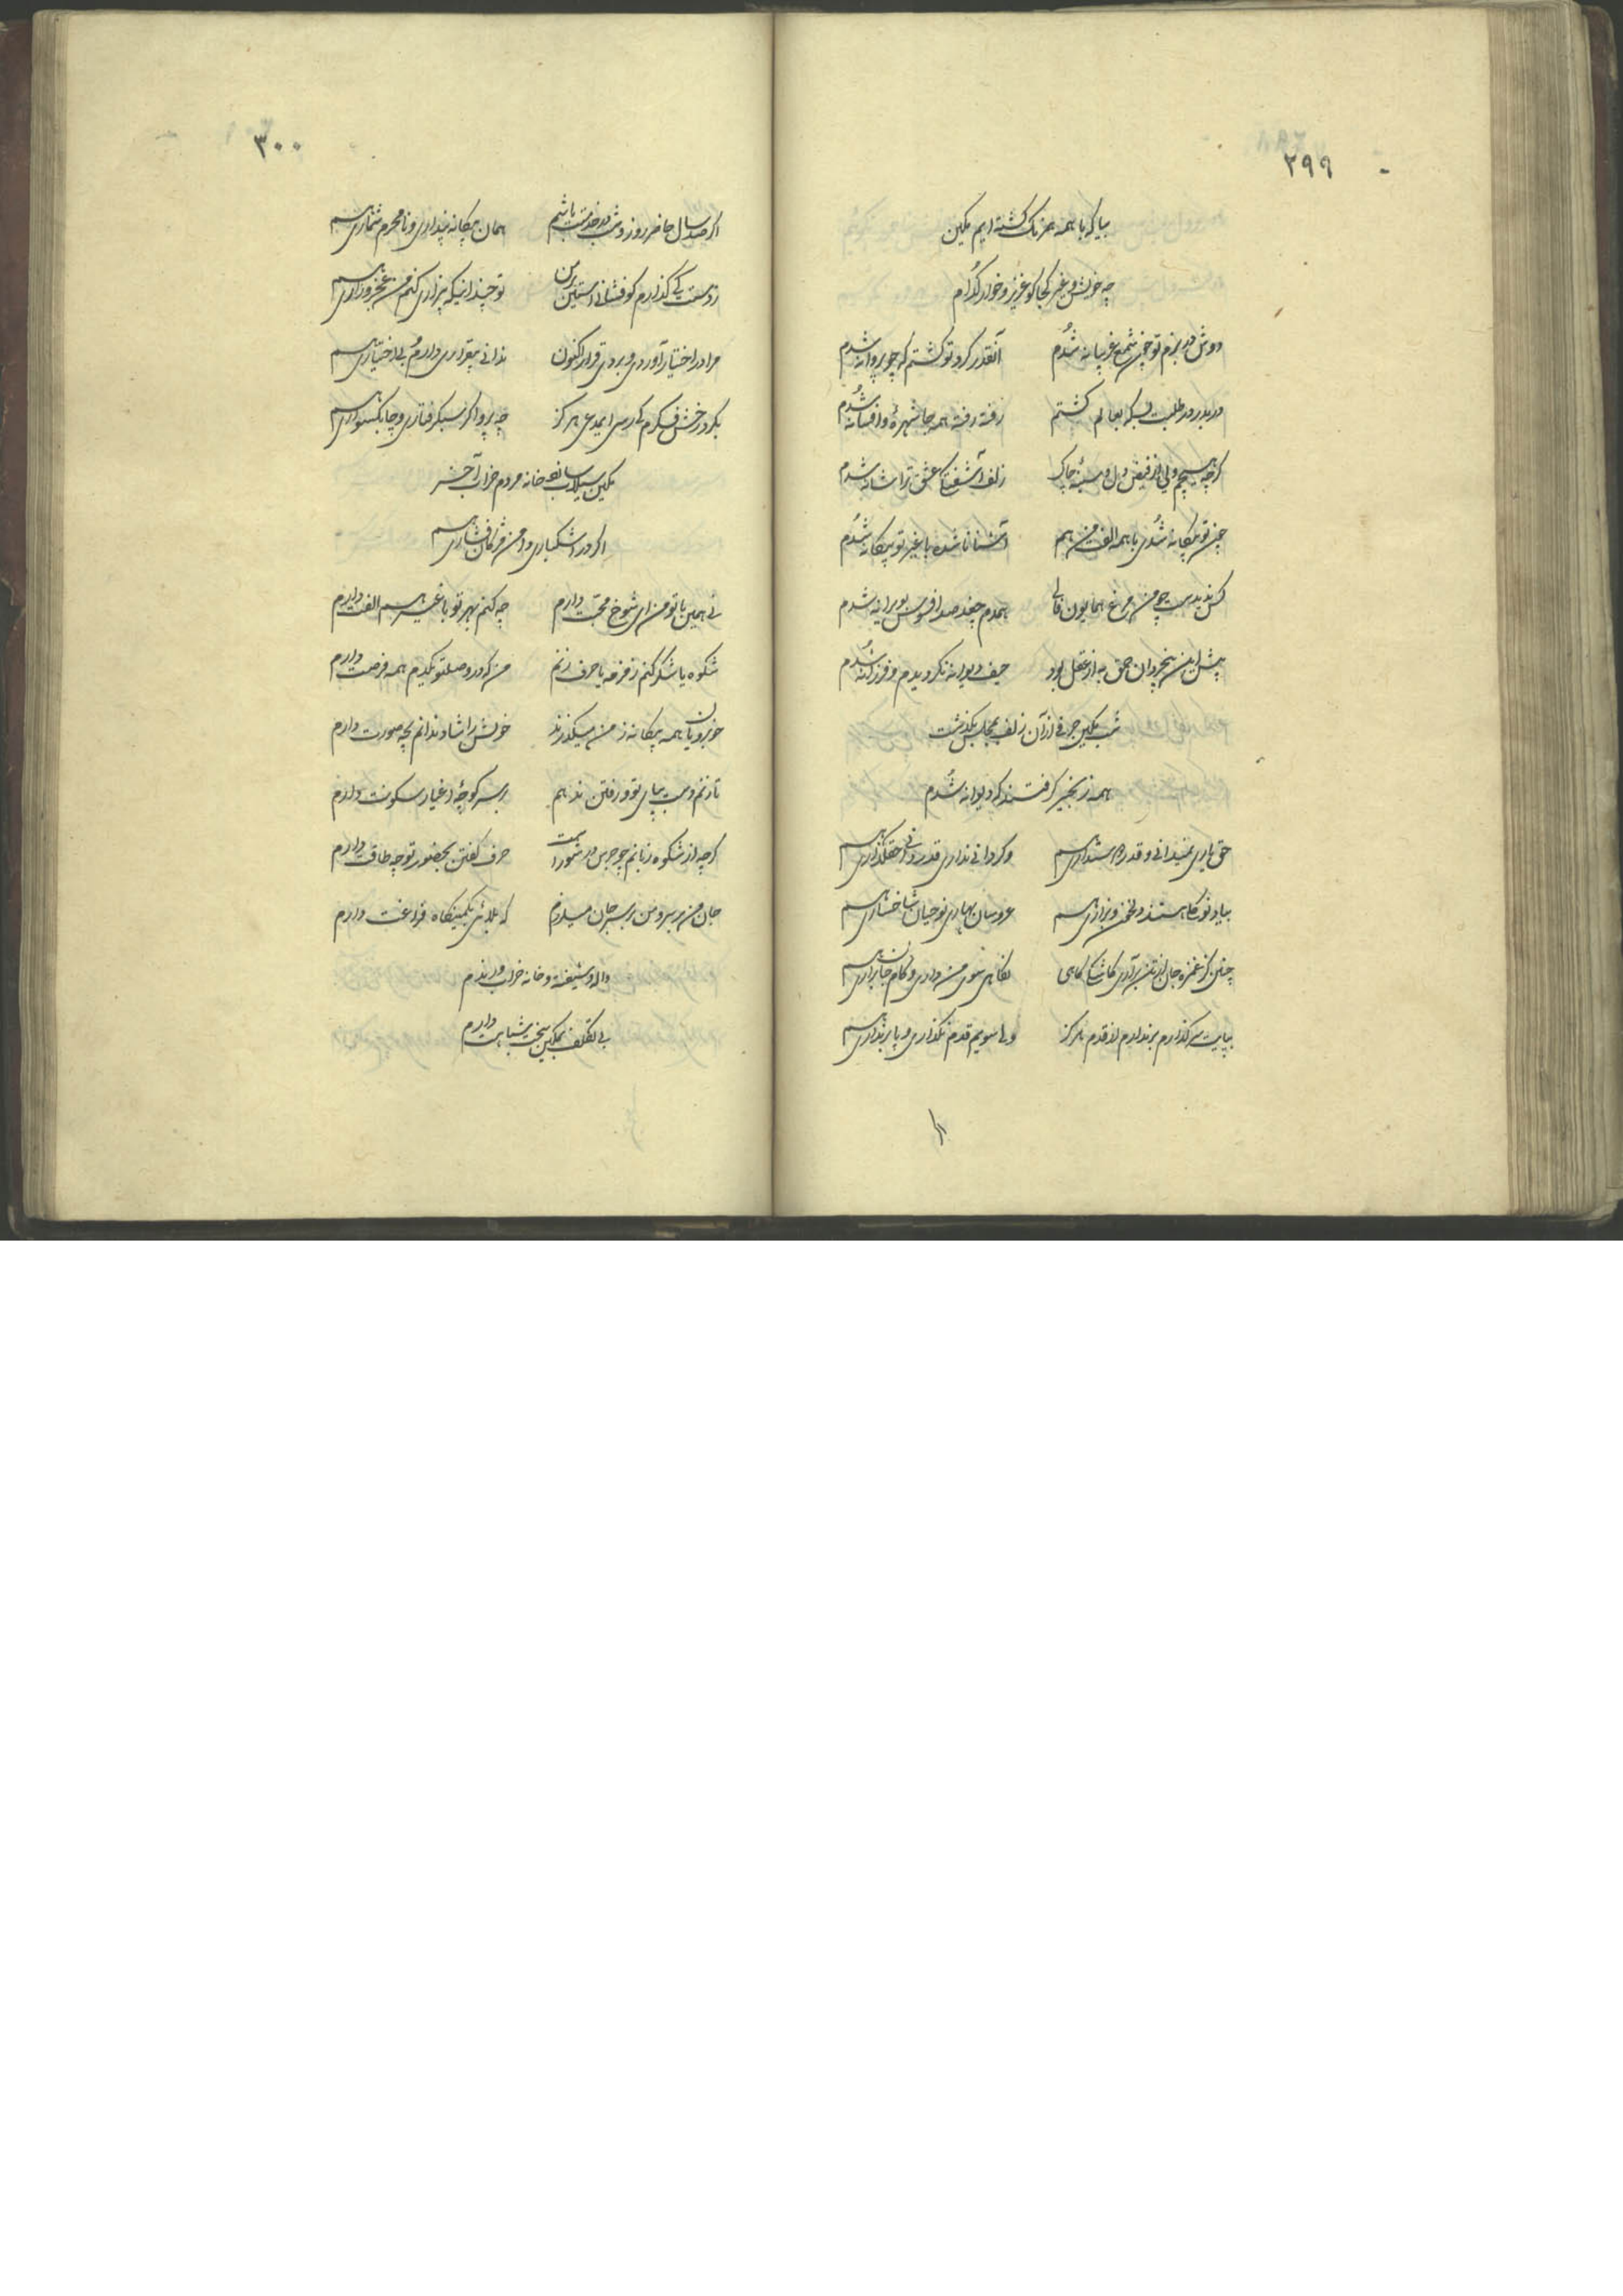 ۲۹۹
بیا که با همه همرنگ گشته ایم مکین
چه خویش و غیر کجا کو عزیز و خوار کدام
دوش در بزم تو چون شمع غریبانه شدم
آنقدر گرد تو گشتم که چو پروانه شدم
در بدر در طلبت بسکه بعالم گشتم
رفته رفته همه جا شهره و افسانه شدم
گرچه هیچم ولی از فیض دل و سینه چاک
زلف آشفتگی عشق ترا شانه شدم
چون تو بیگانه شدی با همه الفت من هم
آشنا نا شده با غیر تو بیگانه شدم
کس ندیدست چو من مرغ همایون فالی
همدم چغد صد افسوس بویرانه شدم
پیش این بیخردان حمق به از عقل بود
حیف دیوانه نگردیدم و فرزانه شدم
شب مکین حرفی از آن زلف بمجلس بگذشت
همه زنجیر گرفتند که دیوانه شدم
حق یاری نمیدانی و قدر دوستداری هم
وگر دانی نداری قدر و حقگذاری هم
عروسان بهاری نوحیان شاخساری هم
چنین کز غمزه جان از تن برآری کاشکی گاهی
نگاهی سوی من داری و کام جان براری هم
بپایت سر گذارم بر ندارم از قدم هرگز
ولی سویم قدم نگذاری و پا بر نداری هم
اگر
۳۰۰
اگر صد سال حاضر روز و شب در خدمتت باشم
همان بیگانه پنداری و نا محرم شماری هم
ز دستت کی گذارم گو فشاندن آستین بر من
تو چندانیکه بیزاری کنم من عجز و زاری هم
مرا در اختیار آوردی و بردی قرار اکنون
ندانی بیقراری دارم و بی اختیاری هم
چه پروا گر سبکرفتاری و چابکسواری هم
مکین سیلاب سان خانه مردم خراب آخر
اگر در اشکباری دامن مژگان فشاری هم
نی همین با تو من ای شوخ محبت دارم
چه کنم بهر تو با غیر هم الفت دارم
شکوه یا شکر کنم زمزمه یا حرف زنم
من که در وصلتو یکدم همه فرصت دارم
خوبرویان همه بیگانه ز من میگذرند
خویش را شاد ندانم بچه صورت دارم
تا زنم دست بپای تو و رفتن ندهم
بر سر کوچه اغیار سکونت دارم
گرچه از شکوه زبانم چو جرس در شور است
حرف گفتن بحضور تو چه طاقت دارم
جان من بر سر و من بر سر جان میلرزم
که بلائی بکمینگاه فراغت دارم
واله و شیفته و خانه خراب و رندم
بی تکلف بمکین سخت شباهت دارم